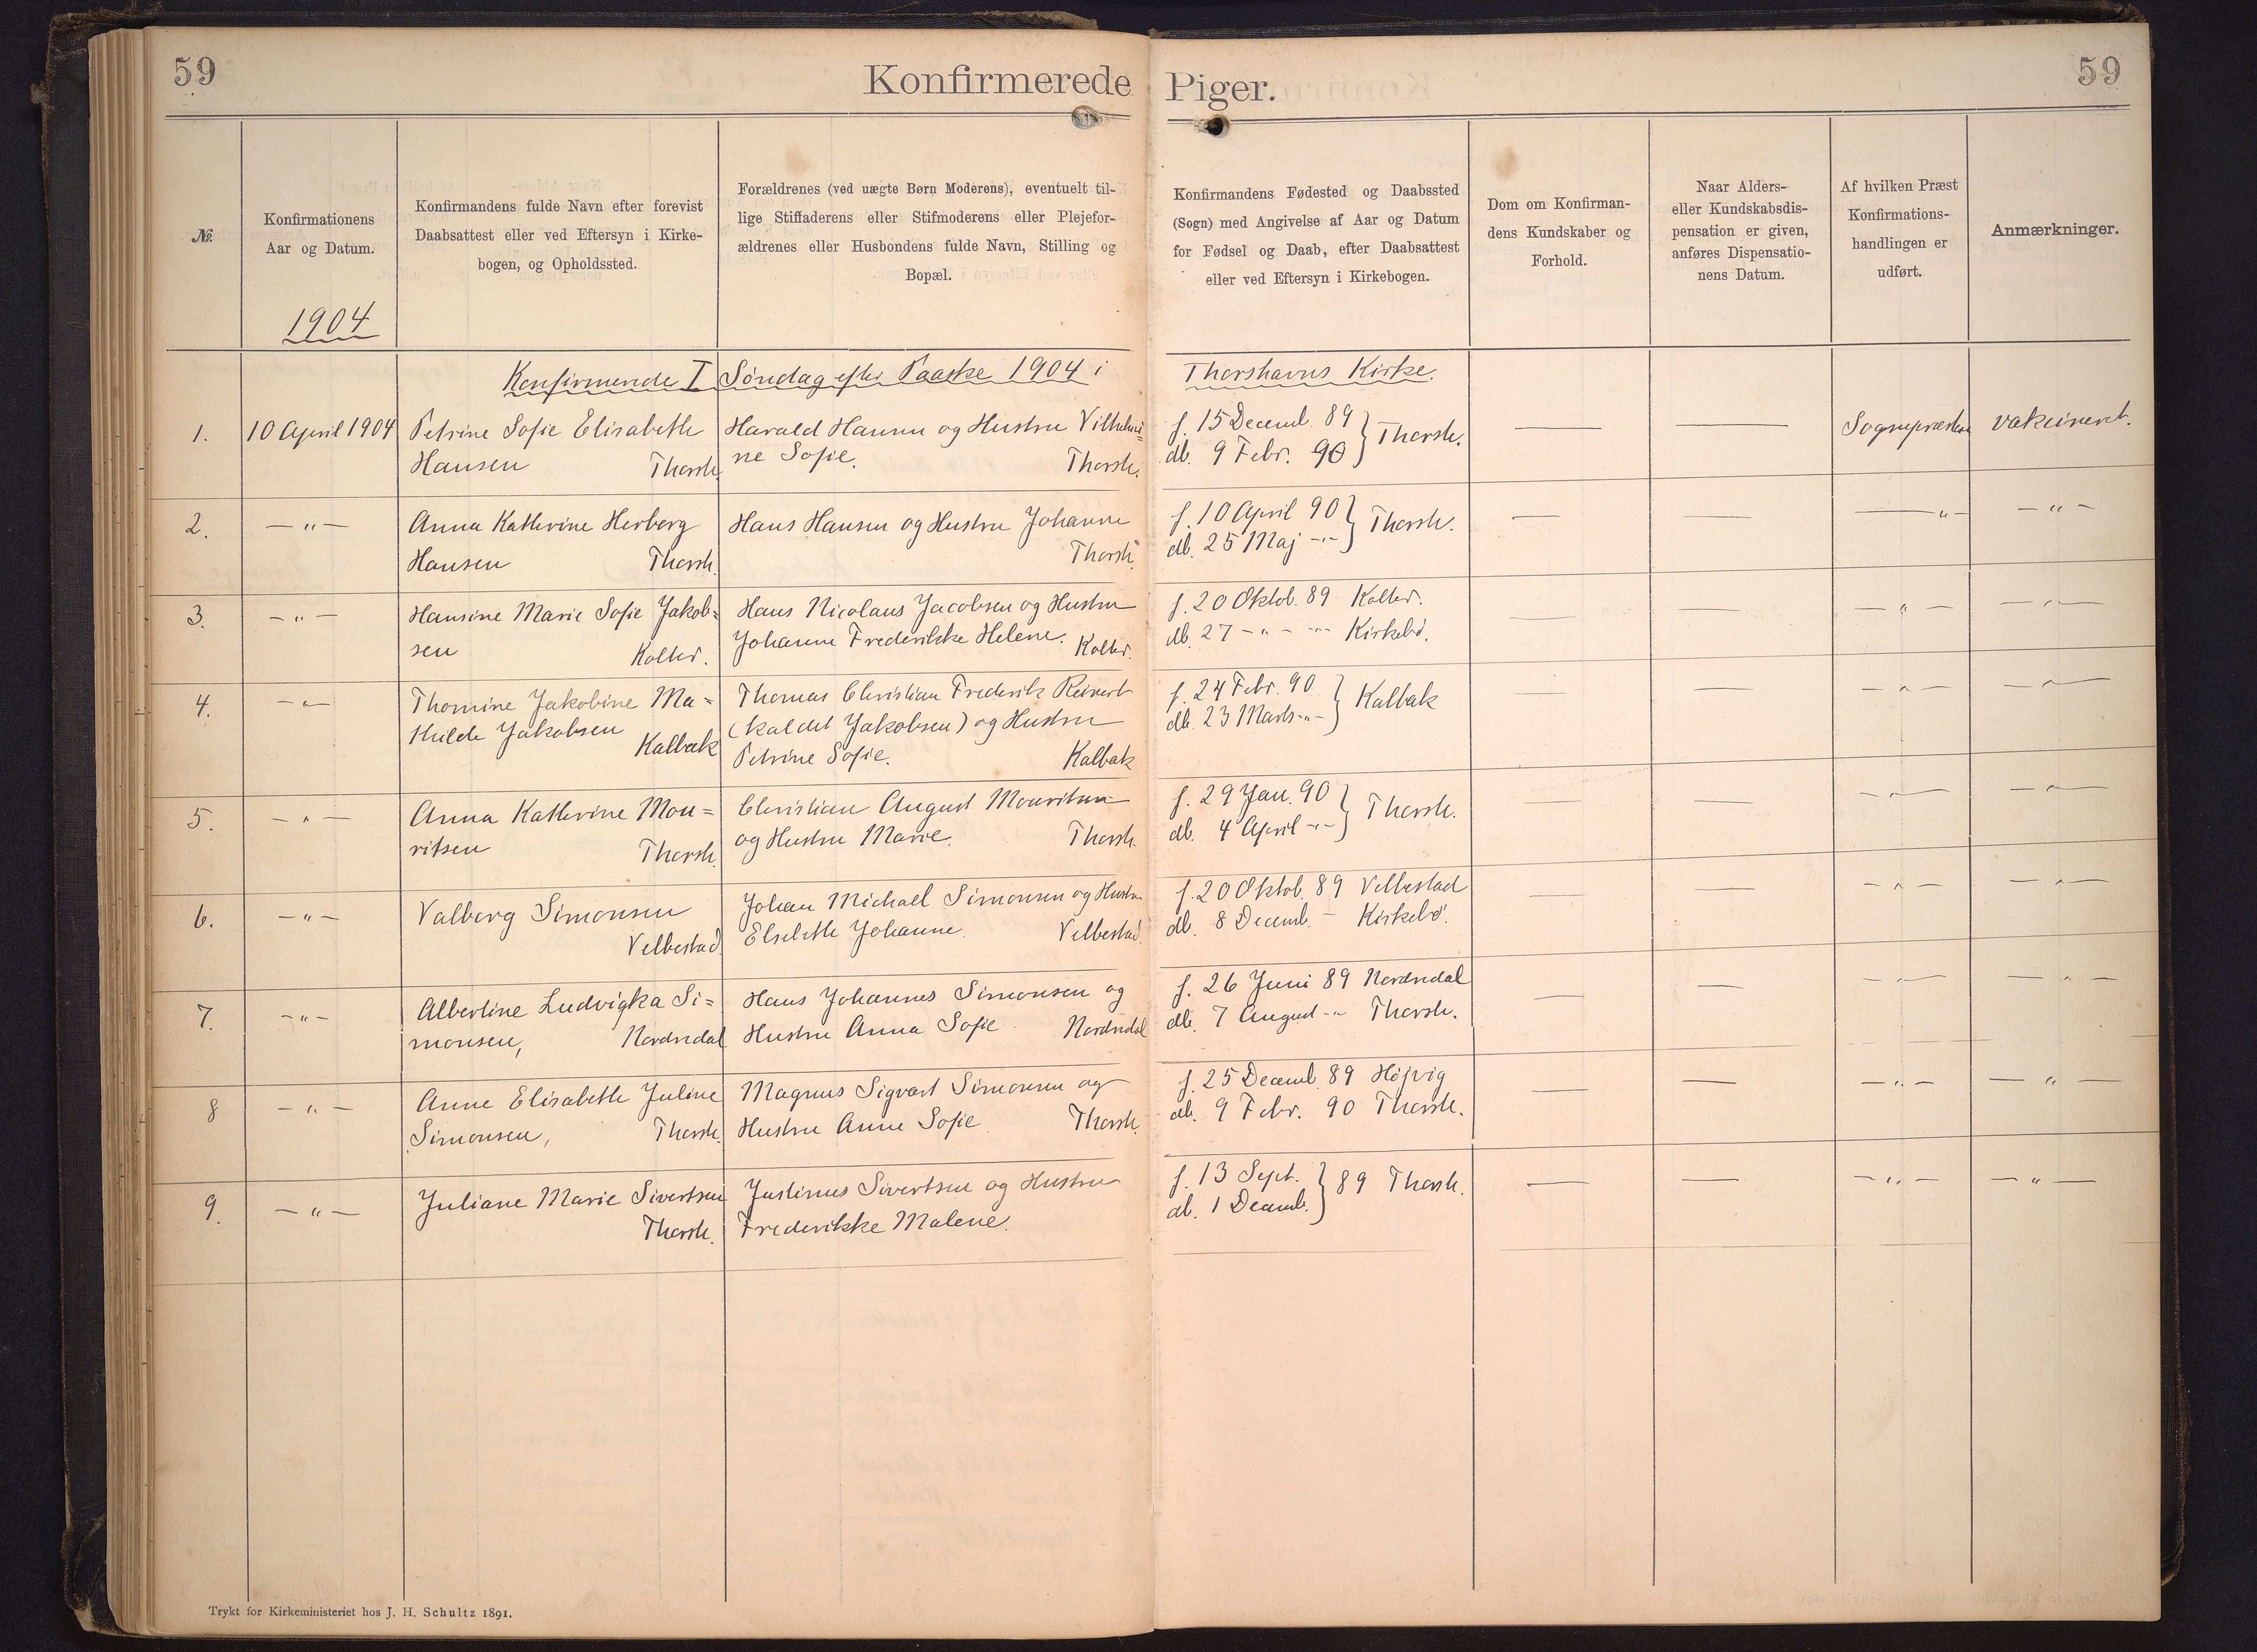 59
Konfirmerede Piger.
59
№.
Konfirmationens
Aar og Datum.
1904
Konfirmandens fulde Navn efter forevist
Daabsattest eller ved Eftersyn i Kirke-
bogen, og Opholdssted.
Forældrenes (ved uægte Børn Moderens), eventuelt til-
lige Stiffaderens eller Stifmoderens eller Plejefor-
ældrenes eller Husbondens fulde Navn, Stilling og
Bopæl.
Konfirmandens Fødested og Daabssted
(Sogn) med Angivelse af Aar og Datum
for Fødsel og Daab, efter Daabsattest
eller ved Eftersyn i Kirkebogen.
Dom om Konfirman-
dens Kundskaber og
Forhold.
Naar Alders-
eller Kundskabsdis-
pensation er given,
anføres Dispensatio-
nens Datum.
Af hvilken Præst
Konfirmations-
handlingen er
udført.
Anmærkninger.
Konfirmerede I Søndag efter Paaske 1904 i Thorshavns Kirke.
1.
10 April 1904
Petrine Sofie Elisabeth
Hansen Thorsh.
Harald Hansen og Hustru Vilhelmi=
ne Sofie. Thorsh.
f. 15 Decemb. 89 } Thorsh.
db. 9 Febr. 90
—
—
Sognepræsten
vakcineret.
2.
— " —
Anna Kathrine Herborg
Hansen Thorsh.
Hans Hansen og Hustru Johanne
Thorsh.
f. 10 April 90 } Thorsh.
db. 25 Maj -"-
—
—
— " —
— " —
3.
— " —
Hansine Marie Sofie Jakob=
sen Kolter.
Hans Nicolaus Jacobsen og Hustru
Johanne Frederikke Helene. Kolter.
f. 20 Oktob. 89 Kolter.
db. 27 — " — -"- Kirkebø.
—
— " —
— " —
4.
— " —
Thomine Jakobine Ma=
thilde Jakobsen Kalbak
Thomas Christian Frederik Reinert
(kaldet Jakobsen) og Hustru
Petrine Sofie. Kalbak
f. 24 Febr. 90 } Kalbak
db. 23 Marts -"-
—
—
— " —
— " —
5.
— " —
Anna Kathrine Mou=
ritsen Thorsh.
Christian August Mouritsen
og Hustru Marie. Thorsh.
f. 29 Jan. 90 } Thorsh.
db. 4 April -"-
—
—
— " —
— " —
6.
— " —
Valborg Simonsen
Velbestad
Johan Michael Simonsen og Hustru
Elsebeth Johanne. Velbestad.
f. 20 Oktob. 89 Velbestad
db. 8 Decemb. — Kirkebø.
—
—
— " —
— " —
7.
— " —
Albertine Ludvigka Si=
monsen, Nordredal
Hans Johannes Simonsen og
Hustru Anna Sofie Nordredal
f. 26 Juni 89 Nordredal
db. 7 August -"- Thorsh.
—
—
— " —
— " —
8
— " —
Anne Elisabeth Juline
Simonsen, Thorsh.
Magnus Sigvert Simonsen og
Hustru Anne Sofie Thorsh.
f. 25 Decemb. 89 Højvig
db. 9 Febr. 90 Thorsh.
—
—
— " —
— " —
9.
— " —
Juliane Marie Sivertsen
Thorsh.
Justinus Sivertsen og Hustru
Frederikke Malene.
f. 13 Sept. } 89 Thorsh.
db. 1 Decemb.
—
—
— " —
— " —
Trykt for Kirkeministeriet hos J. H. Schultz 1891.